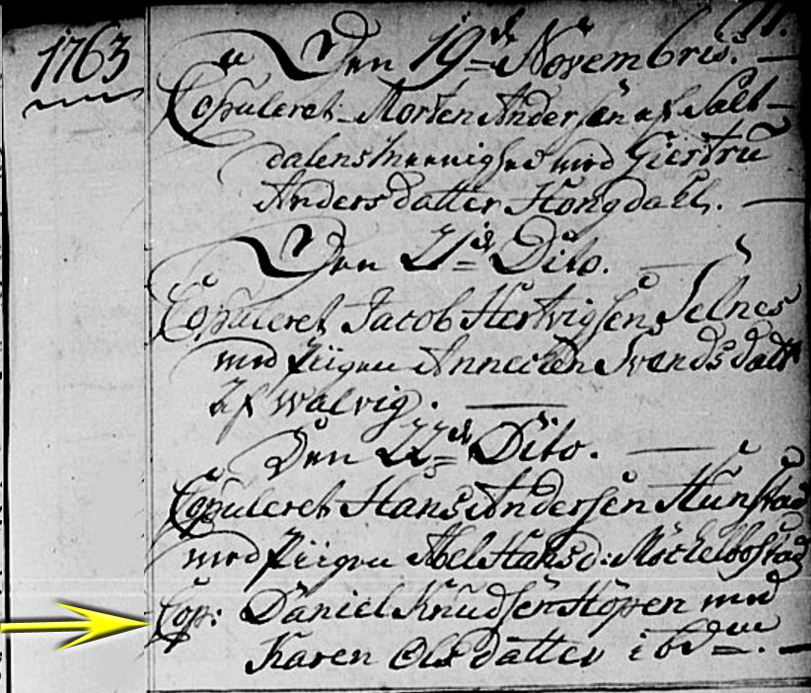 1763
Den 19de Novembris.
Copuleret Morten Andersen af Salt-
dalens Mænnighed med Giertru
Andersdatter Hongdahl.
Den 21de Dito.
Copuleret Jacob Hertvigsens Selnes
med Piigen Annechen Svendsdatt
af Walvig.
Den 22de Dito.
Copuleret Hans Andersen Hunstad
med Piigen Abel Hansd: Möckelbostad
Cop: Daniel Knudsen Höpen med
Karen Olsdatter ibdem.